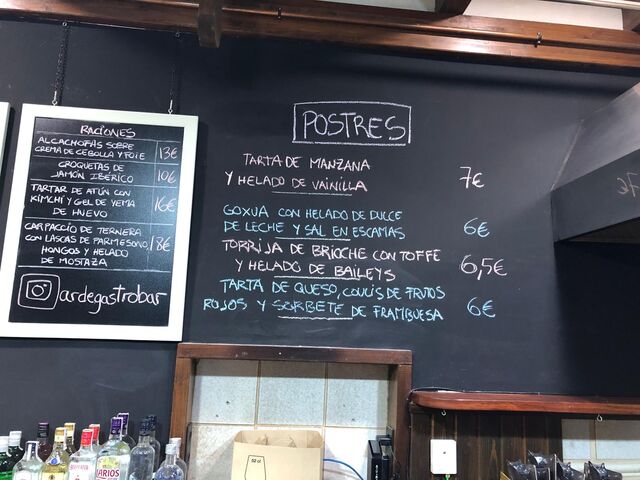 RACIONES
ALCACHOFAS SOBRE
CREMA DE CEBOLLA Y FOIE 13€
CROQUETAS DE
JAMÓN IBÉRICO 10€
TARTAR DE ATÚN CON
KIMCHI Y GEL DE YEMA 16€
DE HUEVO
CARPACCIO DE TERNERA
CON LASCAS DE PARMESONO, 18€
HONGOS Y HELADO
DE MOSTAZA
ardegastrobar
POSTRES
TARTA DE MANZANA
Y HELADO DE VAINILLA 7€
GOXUA CON HELADO DE DULCE
DE LECHE Y SAL EN ESCAMAS 6€
TORRIJA DE BRIOCHE CON TOFFE
Y HELADO DE BAILEYS 6,5€
TARTA DE QUESO, COULIS DE FRUTOS
ROJOS Y SORBETE DE FRAMBUESA 6€
LARIOS
52 cl